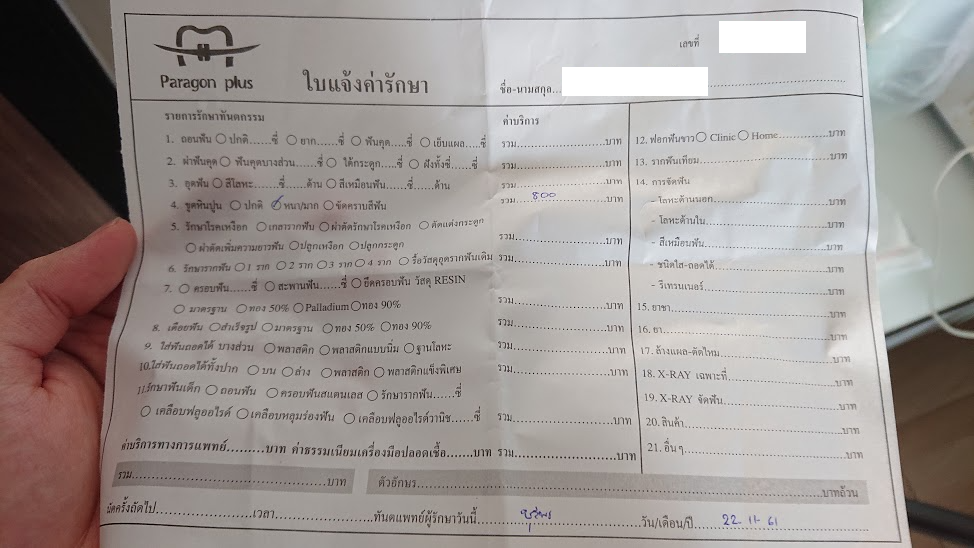 Paragon plus
ใบแจ้งค่ารักษา
เลขที่
ชื่อ-นามสกุล
รายการรักษาทันตกรรม ค่าบริการ
1. ถอนฟัน ปกติ......ซี่ ยาก......ซี่ ฟันคุด......ซี่ เย็บแผล......ซี่ รวม......บาท
2. ผ่าฟันคุด ฟันคุดบางส่วน......ซี่ ใต้กระดูก......ซี่ ฝังทั้งซี่......ซี่ รวม......บาท
3. อุดฟัน สีโลหะ......ซี่......ด้าน สีเหมือนฟัน......ซี่......ด้าน รวม......บาท
4. ขูดหินปูน ปกติ หนา/มาก ขัดคราบสีฟัน รวม 800 บาท
5. รักษาโรคเหงือก เกลารากฟัน ผ่าตัดรักษาโรคเหงือก ตัดแต่งกระดูก
ผ่าตัดเพิ่มความยาวฟัน ปลูกเหงือก ปลูกกระดูก รวม......บาท
6. รักษารากฟัน 1 ราก 2 ราก 3 ราก 4 ราก รื้อวัสดุอุดรากฟันเดิม รวม......บาท
7. ครอบฟัน......ซี่ สะพานฟัน......ซี่ ยึดครอบฟัน วัสดุ RESIN
มาตรฐาน ทอง 50% Palladium ทอง 90% รวม......บาท
8. เดือยฟัน สำเร็จรูป มาตรฐาน ทอง 50% ทอง 90% รวม......บาท
9. ใส่ฟันถอดได้ บางส่วน พลาสติก พลาสติกแบบนิ่ม ฐานโลหะ รวม......บาท
10.ใส่ฟันถอดได้ทั้งปาก บน ล่าง พลาสติก พลาสติกแข็งพิเศษ รวม......บาท
11.รักษาฟันเด็ก ถอนฟัน ครอบฟันสแตนเลส รักษารากฟัน......ซี่
เคลือบฟลูออไรด์ เคลือบหลุมร่องฟัน เคลือบฟลูออไรด์วานิช......ซี่ รวม......บาท
12. ฟอกฟันขาว Clinic Home......บาท
13. รากฟันเทียม......บาท
14. การจัดฟัน
- โลหะด้านนอก......บาท
- โลหะด้านใน......บาท
- สีเหมือนฟัน......บาท
- ชนิดใส-ถอดได้......บาท
- รีเทรนเนอร์......บาท
15. ยาชา......บาท
16. ยา......บาท
17. ล้างแผล-ตัดไหม......บาท
18. X-RAY เฉพาะที่......บาท
19. X-RAY จัดฟัน......บาท
20. สินค้า......บาท
21. อื่นๆ......บาท
ค่าบริการทางการแพทย์.........บาท ค่าธรรมเนียมเครื่องมือปลอดเชื้อ......บาท รวม......บาท
รวม......บาท ตัวอักษร......บาทถ้วน
นัดครั้งถัดไป......เวลา......ทันตแพทย์ผู้รักษาวันนี้......วัน/เดือน/ปี 22-11-61